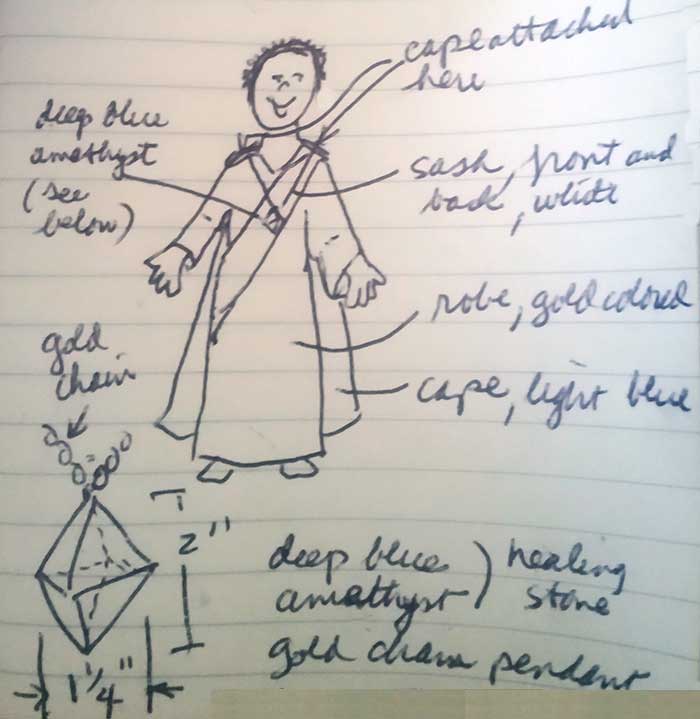 cape attached
here
deep blue
amethyst
(see
below)
sash, front and
back, white
robe, gold colored
gold
chain
cape, light blue
2"
deep blue ) healing
amethyst ) stone
gold chain pendant
1 1/4"